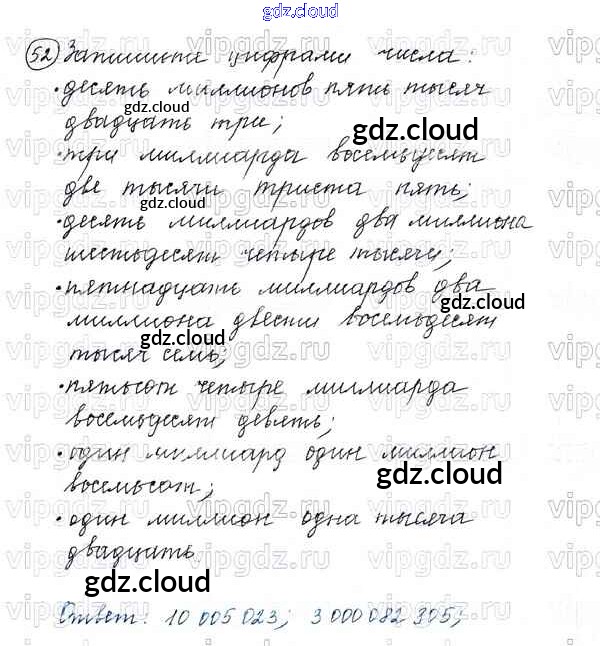 gdz.cloud
52 Запишите цифрами числа:
• десять миллионов пять тысяч
двадцать три;
• три миллиарда восемьдесят
две тысячи триста пять;
• десять миллиардов два миллиона
шестьдесят четыре тысячи;
• пятнадцать миллиардов два
миллиона двести восемьдесят
тысяч семь;
• пятьсот четыре миллиарда
восемьдесят девять;
• один миллиард один миллион
восемьсот;
• один миллион одна тысяча
двадцать.
gdz.cloud
Ответ: 10 005 023; 3 000 082 305;